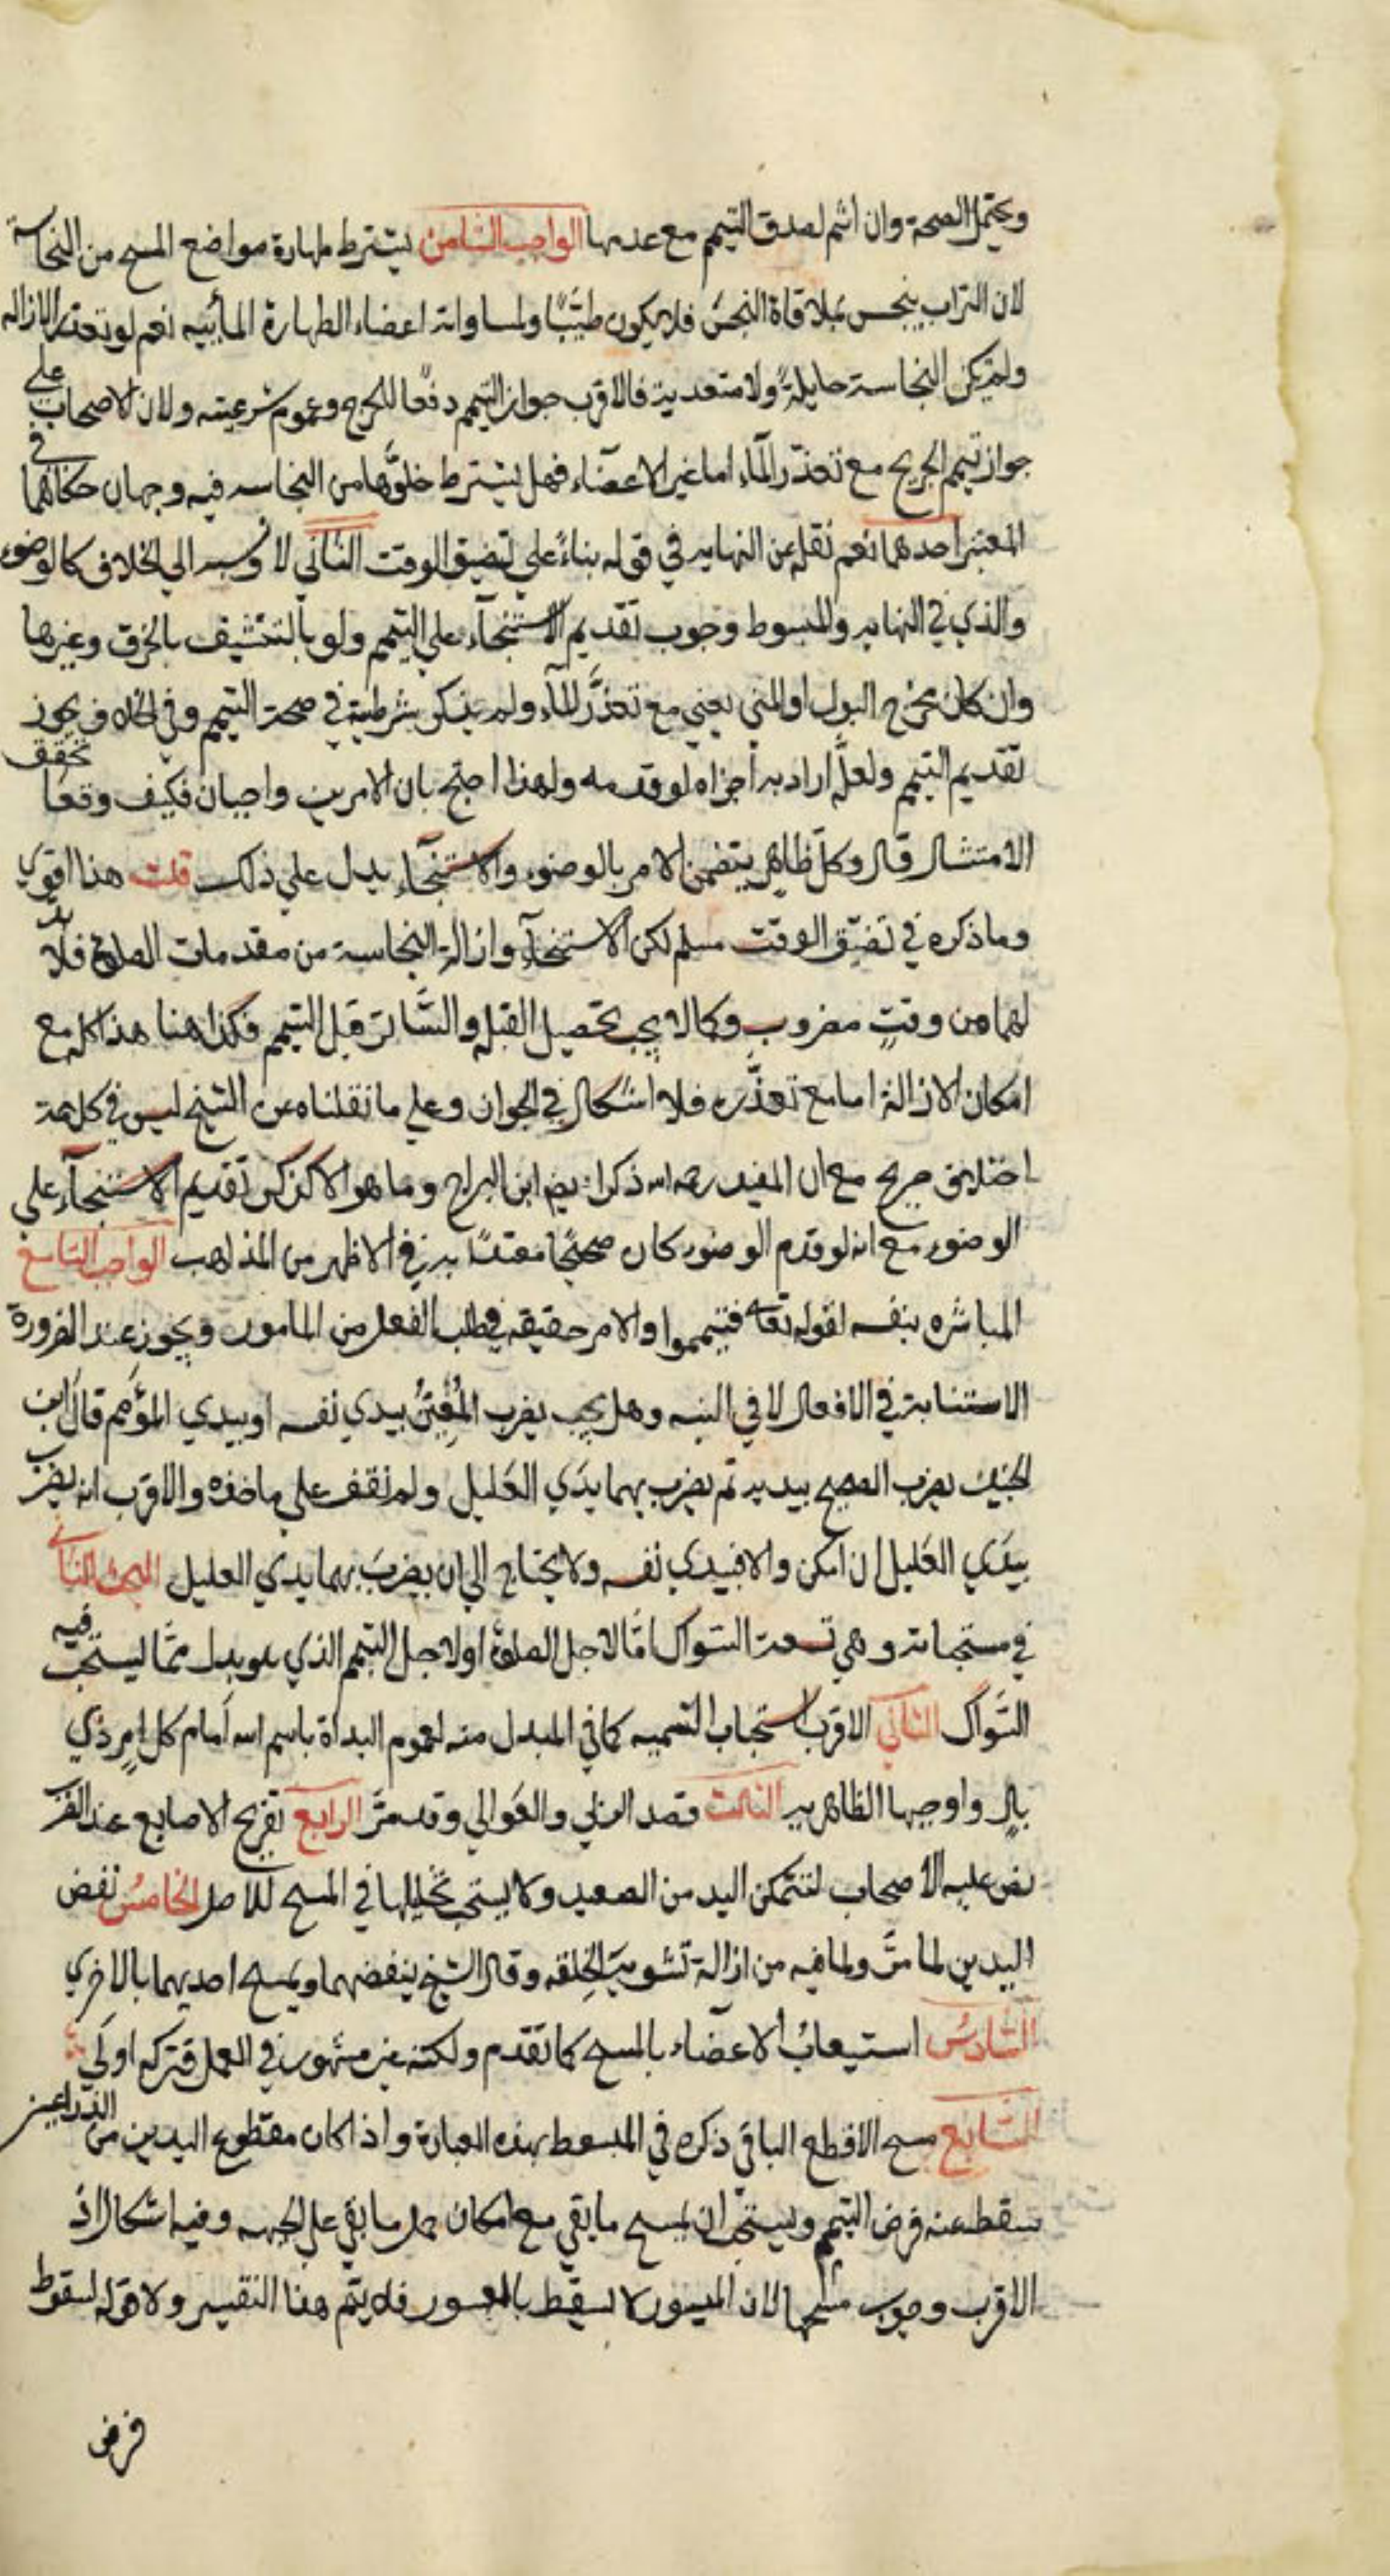 ويحتمل الصحة وان اثم لصدق التيمم مع عدمها الواجب الثامن يشترط طهارة مواضع المسح من النجاسة
لان التراب ينجس بملاقاة النجس فلا يكون طيبًا ولمساواته اعضاء الطهارة المائيه نعم لو تعذرت الازاله
ولم تكن النجاسة حايلةً ولا متعدية فالاقرب جواز التيمم دفعًا للحرج وعموم شرعيته ولان الاصحاب على
جواز تيمم الجريح مع تعذر المآء اما غير الاعضاء فهل يشترط خلوُّها من النجاسه فيه وجهان حكاهما في
المعتبر احدهما نعم نقله عن النهايه في قوله بناءً علي تضيق الوقت الثاني لا ونسبه الي الخلاف كالوضوء
والذي في النهايه والمبسوط وجوب تقديم الاستنجآء علي التيمم ولو بالتنشيف بالخرق وغيرها
وان كان مخرج البول او المني يعني مع تعذُّر المآء ولم يذكر شرطيته في صحة التيمم وفي الخلاف يجوز
تقديم التيمم ولعلَّه اراد به اجزاه لو قدمه ولهذا احتج بان الامرين واجبان فكيف وقعا تحقق
الامتثال قال وكلّ ظاهر يتضمن الامر بالوضوء والاستنجآء يدل علي ذلك قلت هذا اقوي
وما ذكره في تضيّق الوقت مسلم لكن الاستنجآء وازالة النجاسة من مقدمات الصلاة فلا بد
لهما من وقتٍ مضروب وكما لا يجب تحصيل القبله والسَّاتر قبل التيمم فكذا هنا هذا كله مع
امكان الازالة اما مع تعذُّره فلا اشكال في الجواز وعلي ما نقلناه عن الشيخ ليس في كلامه
اختلاف صريح مع ان المفيد رحمه الله ذكر ايضا ابن البراج وما هو الا كذكر تقديم الاستنجآء علي
الوضوء مع انه لو قدم الوضوء كان صحيحًا معتدًا به في الاظهر من المذاهب الواجب التاسع
المباشره بنفسه لقوله تعالى فتيمموا والامر حقيقه في طلب الفعل من المامور ويجوز عند الضرورة
الاستنابة في الافعال لا في النيه وهل يجب يضرب المُعِينُ بيدي نفسه او بيدي المؤمم قال ابن
الجنيد يضرب الصحيح بيديه ثم يضرب بهما يدَي العليل ولم نقف علي ماخذه والاقرب انه يضرب
بيدَي العَليل ان امكن والا فبيدي نفسه ولا يحتاج الي ان يضربَ بهما يدي العليل البحث الثاني
في مستحباته وهي تسعة السّواك امّا لاجل الصلوة او لاجل التيمم الذي هو بدل ممّا يستحب فيه
السَّواك الثاني الاقرب استحباب التسميه كما في المبدل منه لعموم البداة باسم الله اَمام كل امرٍ ذي
بالٍ واوجبها الظاهريه الثالث قصد الربي والعَوالي وقد مرَّ الرابع تفريج الاصابع عند الضرب
نص عليه الاصحاب لتتمكن اليد من الصعيد ولا يستحب تخليلها في المسح للاصل الخامسُ نفض
اليدين لما مرَّ ولما فيه من ازالة تشويه الخِلقه وقال الشيخ ينفضهما ويمسح احديهما بالاخري
السَّادسُ استيعابُ الاعضاء بالمسح كما تقدم ولكنه غير مشهور في العمل فتركه اولَي
السَّابع مسح الاقطع الباقي ذكره في المبسوط بهذه العبارة واذا كان مقطوع اليدين من الذراعين
سقط عنه فرض التيمم ويستحب ان يمسح ما بقي مع امكان حمل ما بقي علي الجبهه وفيه اشكال اذ
الاقرب وجوب مسحها لان الميسور لا يسقط بالمعسور فلا يتم هذا التفسير ولا قوله لسقوط
فرض